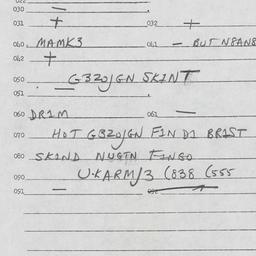 030 —
031 + 032 +
060. MAMK3 061 — BUT N8AN8
062 +
050 G3ZOJGN SKINT
051
060 DR1M 061 —
070 HOT G8ZOJGN FIN D1 BR1ST
080 SKIND NUGTN FINGO
090 U·KARM/3 (838 (555
051 —